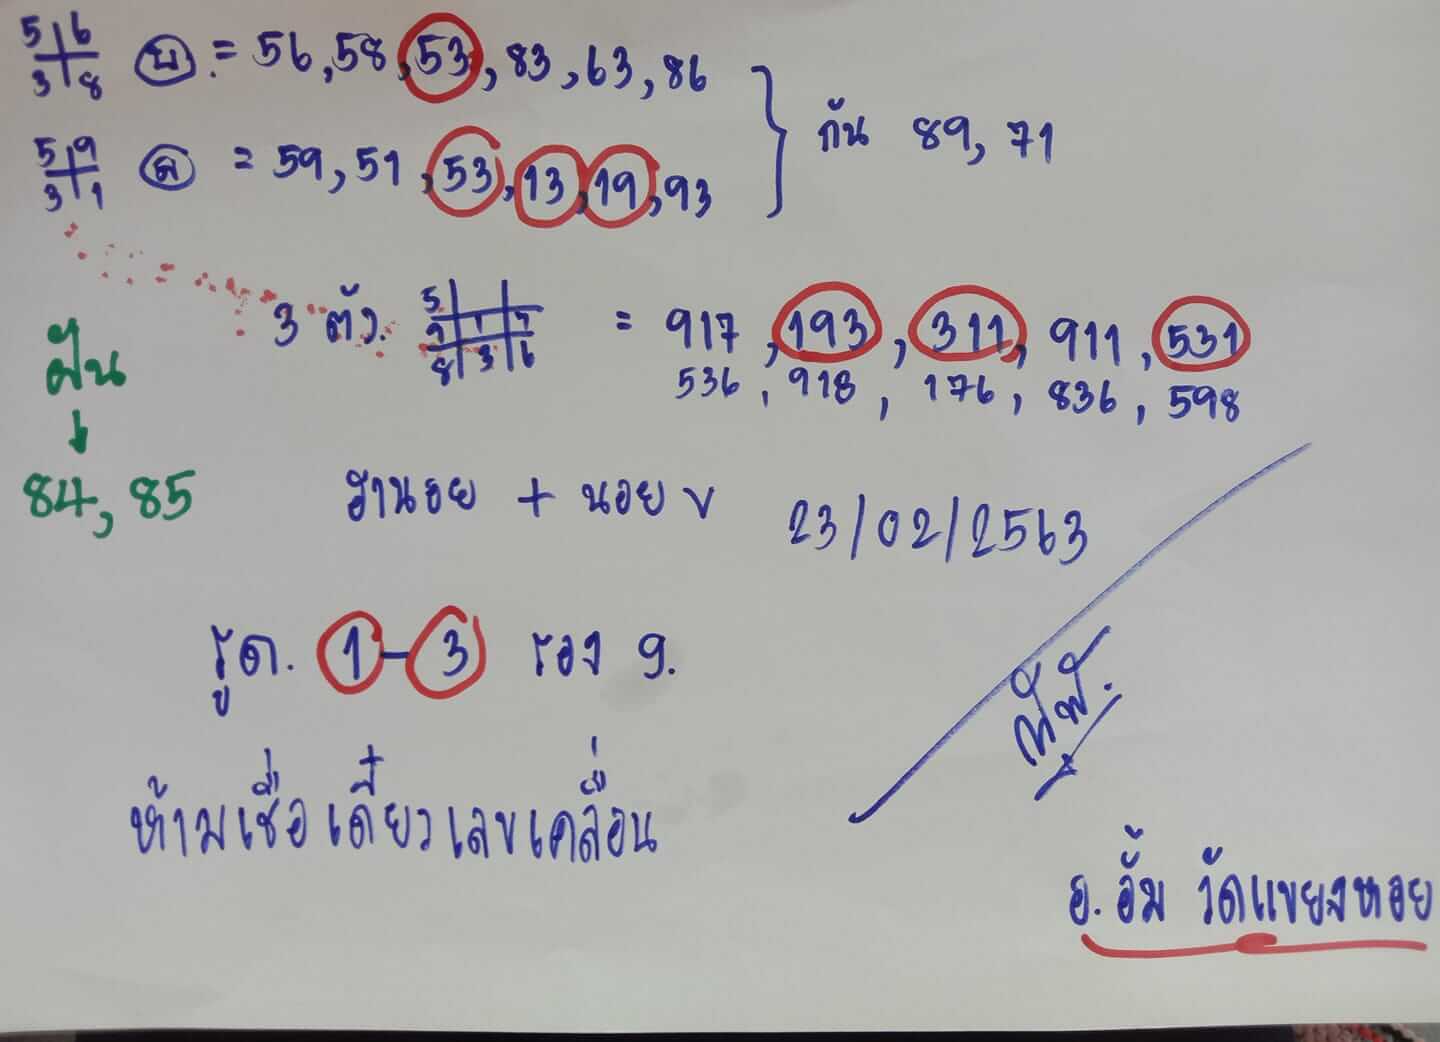 5 6
3 8 บ = 56, 58, 53, 83, 63, 86
5 9
3 1 ล = 59, 51, 53, 13, 19, 93
กัน 89, 71
3 ตัว.
5
9 1 7
8 3 6
= 917, 193, 311, 911, 531
536, 918, 176, 836, 598
ฝัน
↓
84, 85
ฮานอย + นอย v 23/02/2563
รูด. 1-3 รอง 9.
ห้ามเชื่อเดี๋ยวเลขเคลื่อน
อ. อั้ม วัดแขยงหอย